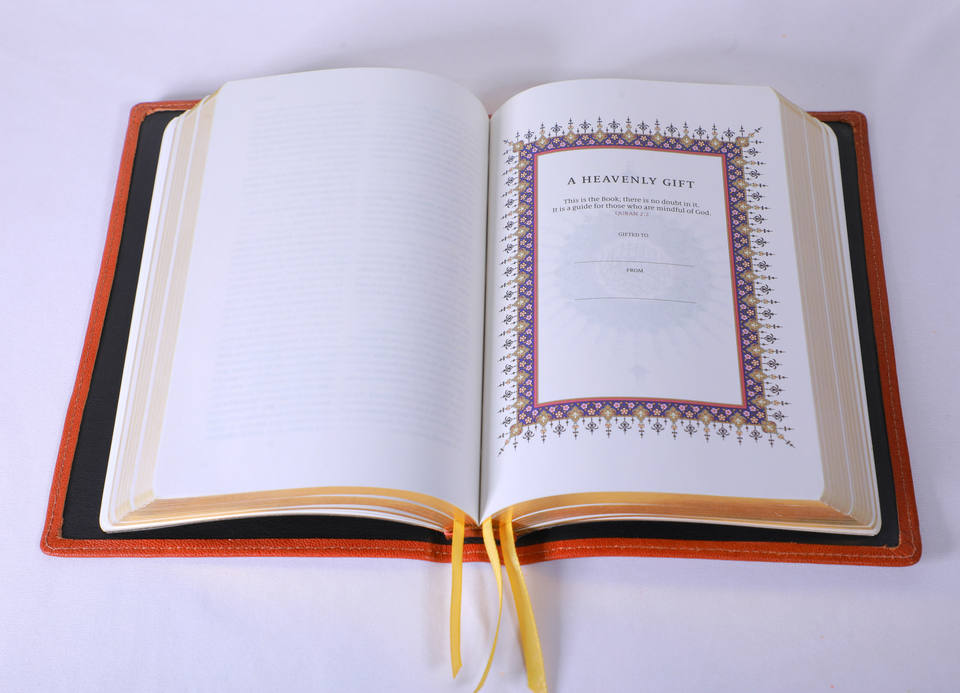 A HEAVENLY GIFT
This is the Book; there is no doubt in it.
It is a guide for those who are mindful of God.
QURAN 2:2
GIFTED TO
FROM